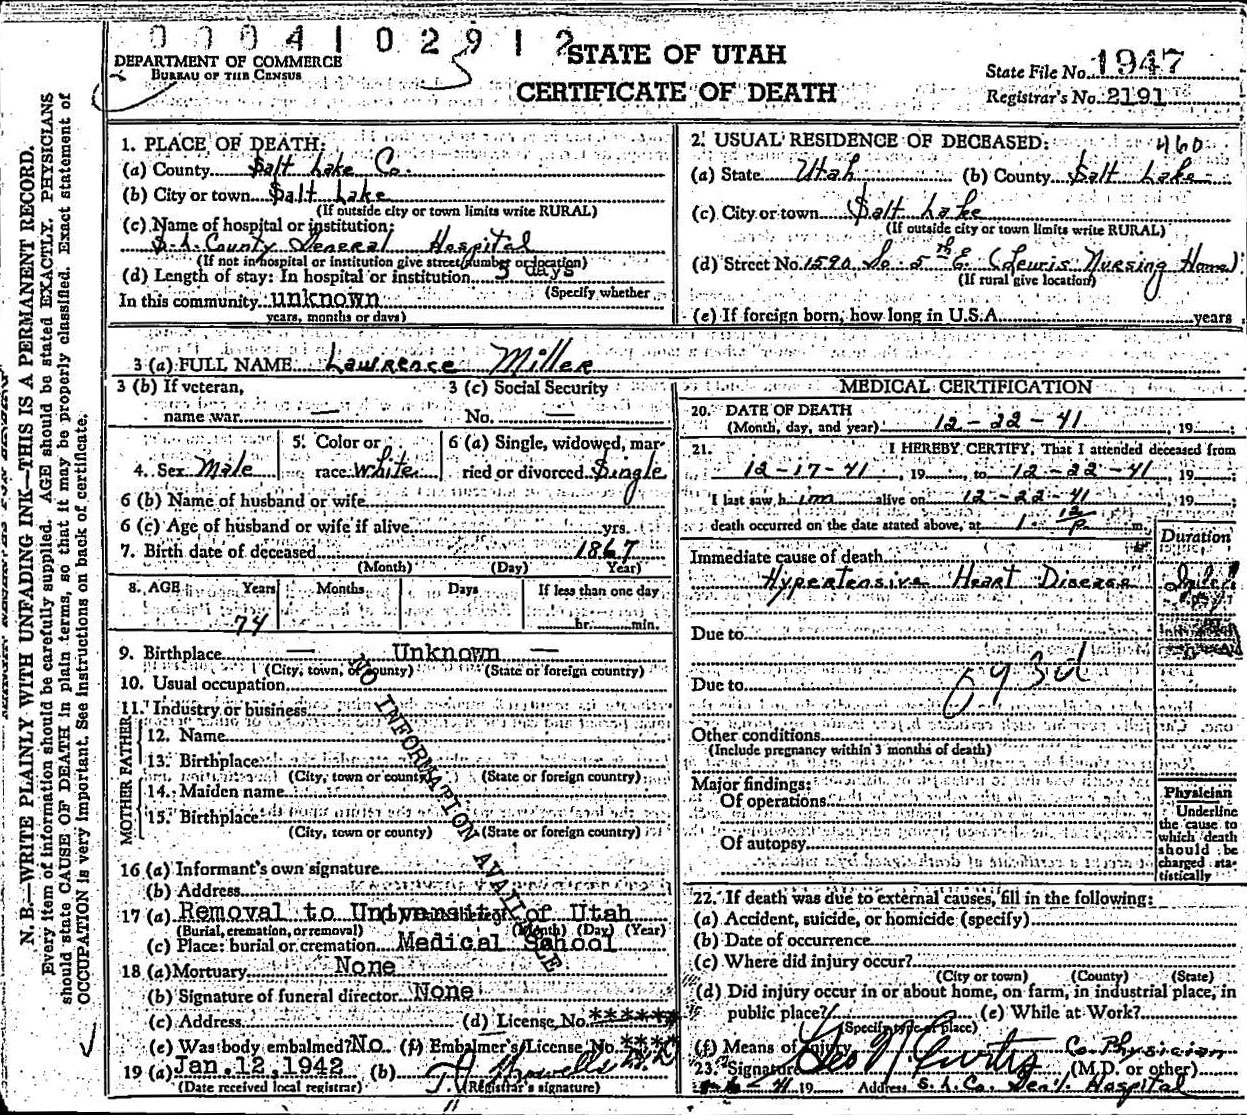 0 0 0 4 1 0 2 9 1 2
DEPARTMENT OF COMMERCE
BUREAU OF THE CENSUS
STATE OF UTAH
CERTIFICATE OF DEATH
State File No. 1947
Registrar's No. 2191
N. B.—WRITE PLAINLY WITH UNFADING INK—THIS IS A PERMANENT RECORD.
Every item of information should be carefully supplied. AGE should be stated EXACTLY. PHYSICIANS
should state CAUSE OF DEATH in plain terms, so that it may be properly classified. Exact statement of
OCCUPATION is very important. See instructions on back of certificate.
1. PLACE OF DEATH:
(a) County Salt Lake Co.
(b) City or town Salt Lake
(If outside city or town limits write RURAL)
(c) Name of hospital or institution:
S. L. County General Hospital
(If not in hospital or institution give street number or location)
(d) Length of stay: In hospital or institution 5 days
(Specify whether
In this community unknown
years, months or days)
2. USUAL RESIDENCE OF DECEASED: 460
(a) State Utah (b) County Salt Lake
(c) City or town Salt Lake
(If outside city or town limits write RURAL)
(d) Street No. 1590 So. 5th E. (Lewis Nursing Home)
(If rural give location)
(e) If foreign born, how long in U.S.A. years
3 (a) FULL NAME Lawrence Miller
3 (b) If veteran,
name war —
3 (c) Social Security
No. —
4. Sex Male
5. Color or
race White
6 (a) Single, widowed, mar-
ried or divorced Single
6 (b) Name of husband or wife
6 (c) Age of husband or wife if alive yrs.
7. Birth date of deceased 1867
(Month) (Day) (Year)
8. AGE Years Months Days If less than one day
74 hr. min.
9. Birthplace — Unknown —
(City, town, or county) (State or foreign country)
10. Usual occupation
11. Industry or business
FATHER
12. Name
13. Birthplace
(City, town or county) (State or foreign country)
MOTHER
14. Maiden name
15. Birthplace
(City, town or county) (State or foreign country)
NO INFORMATION AVAILABLE
16 (a) Informant's own signature
(b) Address
17 (a) Removal to University of Utah
(Burial, cremation, or removal) (Month) (Day) (Year)
(c) Place: burial or cremation Medical School
18 (a) Mortuary None
(b) Signature of funeral director None
(c) Address (d) License No. ******
(e) Was body embalmed? No (f) Embalmer's License No. ****
19 (a) Jan. 12, 1942 (b)
(Date received local registrar) (Registrar's signature)
MEDICAL CERTIFICATION
20. DATE OF DEATH
(Month, day, and year) 12-22-41, 19
21. I HEREBY CERTIFY, That I attended deceased from
12-17-41, 19, to 12-22-41, 19
I last saw him alive on 12-22-41 19
death occurred on the date stated above, at 1:12 P m.
Duration
Immediate cause of death
Hypertensive Heart Disease
Due to
Due to
Other conditions
(Include pregnancy within 3 months of death)
Major findings:
Of operations
Of autopsy
Physician
Underline
the cause to
which death
should be
charged sta-
tistically
22. If death was due to external causes, fill in the following:
(a) Accident, suicide, or homicide (specify)
(b) Date of occurrence
(c) Where did injury occur?
(City or town) (County) (State)
(d) Did injury occur in or about home, on farm, in industrial place, in
public place? (e) While at Work?
(Specify type of place)
(f) Means of injury
23. Signature Geo N Curtis Co. Physician
(M.D. or other)
19 Address S. L. Co. Gen'l. Hospital